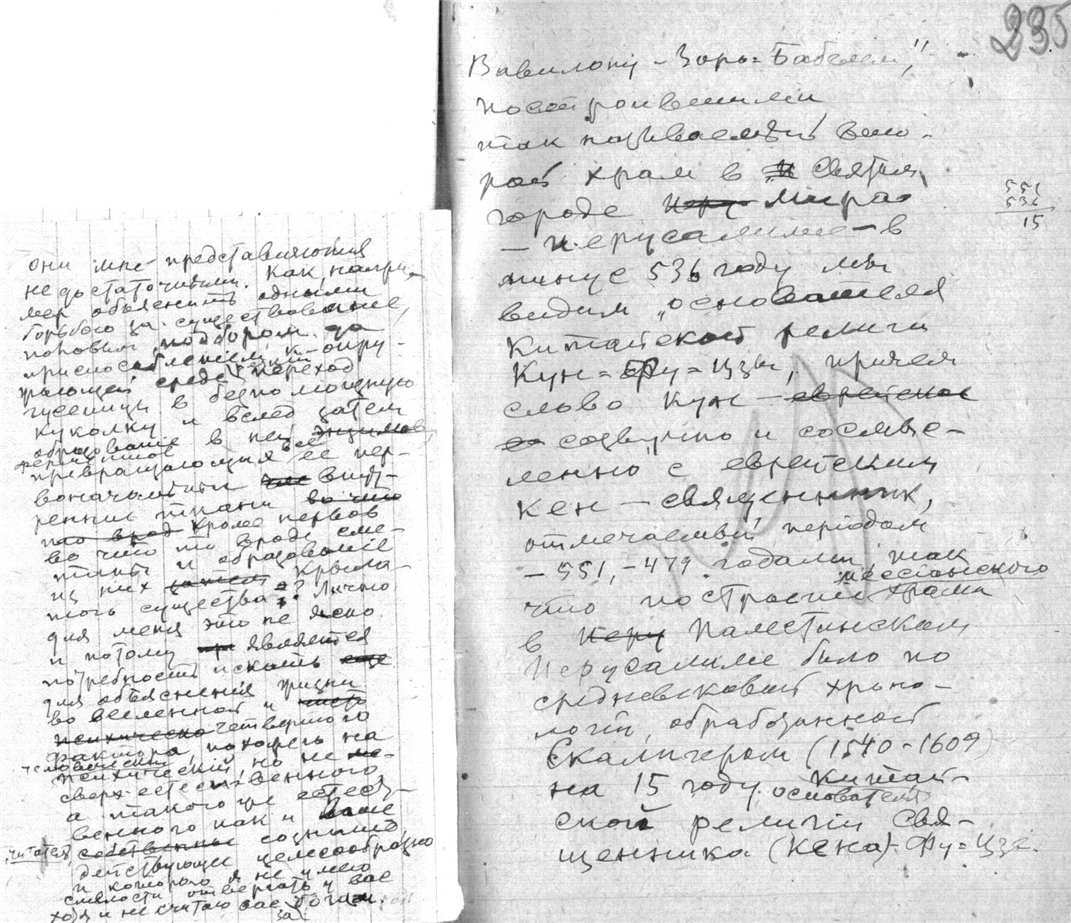 они мне представляются
недостаточными. Как, напри-
мер объяснить одними
борьбою за существование,
половым подбором да
приспособлением к окру-
жающей среде переход
гусеницы в безпомощную
куколку и вслед затем
образование в ней энзимов,
ферментов
превращающих все ее пер-
воначальные внут-
ренние ткани во что
то вроде Кроме первов
во что то вроде сме-
таны и образование
из них крыла-
того существа? Лично
для меня это не ясно
и потому является
потребность искать еще
для объяснения жизни
во вселенной и
психическо четвертого
фактора, похожего на
человеческий
психический, но не
сверх-естественного
а такого же естест-
венного как и Ваше
читатель собственное сознание
действующе целесообразно
и которого я не имею
смелости отвергать у вас
хотя и не считаю вас богом
за
235
Вавилону - Зоро=Бабелем",
построившими
так называемый вто-
рой храм в Святом
городе Иеру Мира
- Иерусалиме - в
минус 536 году мы
видим "основателя
Китайской религии
Кун=Фу=Цзы, причем
слово Кун - еврейское
созвучно и сосмыс-
ленно с еврейским
Кен - священник,
отмечаемый периодом
-551, -479 годами, так
мессианского
что построение храма
в Иеру Палестинском
Иерусалиме было по
средневековой хроно-
логии, обработанной
Скалигером (1540-1609)
на 15 году Китай-
основателя
ской религии свя-
щенника (Кена)-Фу=Цзе.
551
536
15